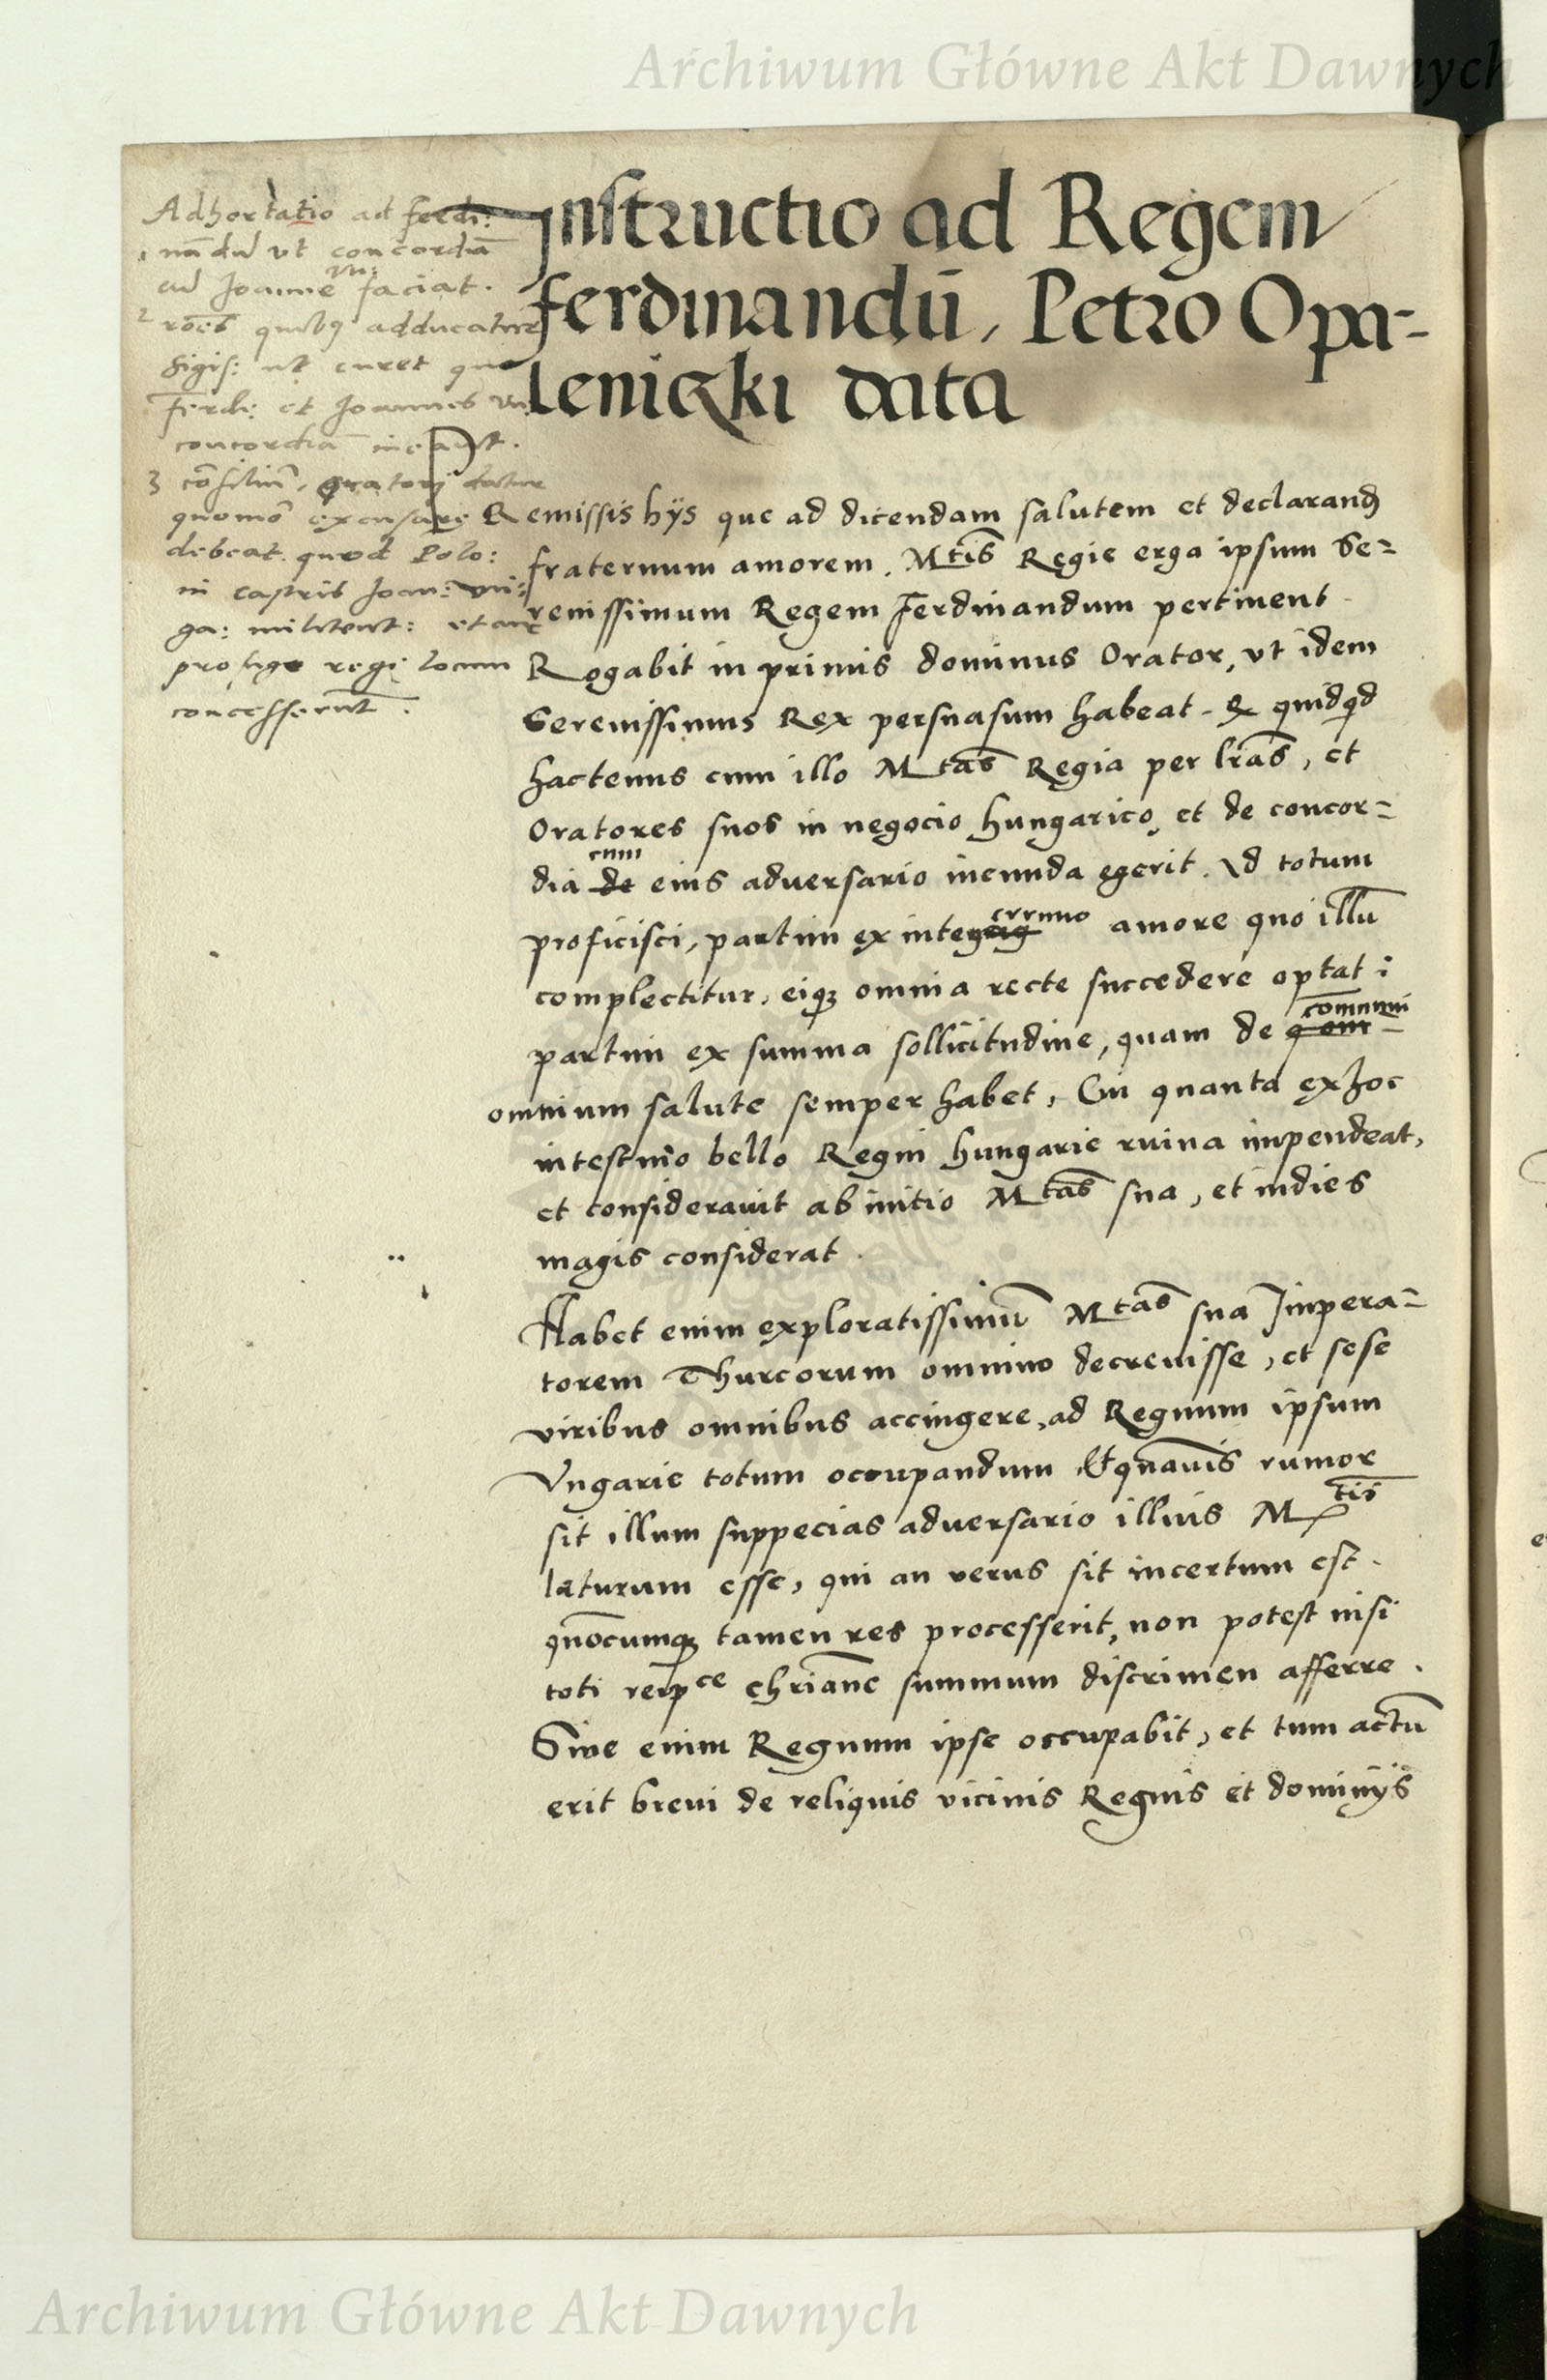 Archiwum Główne Akt Dawnych
Instructio ad Regem
Ferdinandū, Petro Opa-
leniczki data
Adhortatio ad Ferdi:
1 nādū vt concordiā
cū Joanne Vn: faciat.
2 rōes quibꝯ adducatur
Sigis: ut curet quo
Ferdi: et Joannes Vn:
concordiā ineant.
3 cōsiliū, oratori datur
quomō excusare
debeat quod Polo:
in castris Joan: Vn:
ga: militent: et
profugo regi locum
concesserūt.
Remissis hijs que ad dicendam salutem et declarand
fraternum amorem. Mtis Regie erga ipsum Se=
renissimum Regem Ferdinandum pertinent.
Rogabit in primis dominus Orator, vt idem
Serenissimus Rex persuasum habeat. quidqd
hactenus cum illo Mtas Regia per lras, et
Oratores suos in negocio hungarico, et de concor=
dia de cum eius adversario ineunda egerit. Id totum
proficisci, partim ex amore quo illū
complectitur, eiqꝫ omnia recte succedere optat:
partim ex summa sollicitudine, quam de communi
omnium salute semper habet, Cui quanta ex hoc
intestino bello Regni hungarie ruina impendeat,
et considerauit ab initio Mtas sua, et indies
magis considerat.
Habet enim exploratissimū Mtas sua Impera=
torem Thurcorum omnino decreuisse, et sese
viribus omnibus accingere, ad Regnum ipsum
Vngarie totum occupandum, Et quāuis rumor
sit illum suppecias adversario illius Mtis
laturum esse, qui an verus sit incertum est.
quōcumqꝫ tamen res processerit, non potest nisi
toti reipce chriane summum discrimen afferre.
Siue enim Regnum ipse occupabit, et tum actū
erit breui de reliquis vicinis Regnis et dominijs
Archiwum Główne Akt Dawnych